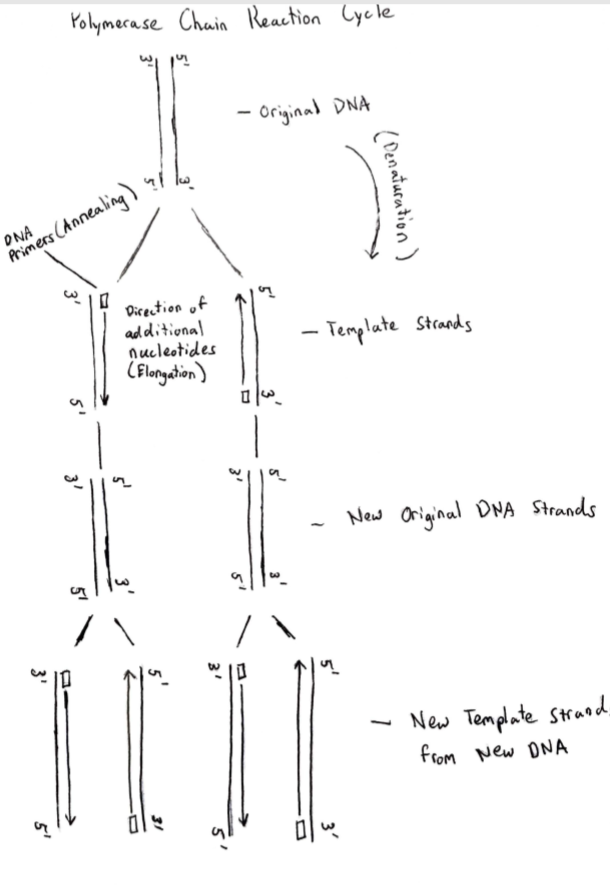 Polymerase Chain Reaction Cycle
3' 5'
- Original DNA
(Denaturation)
5' 3'
DNA
Primers (Annealing)
3' 5'
Direction of
additional
nucleotides
(Elongation)
- Template Strands
5' 3'
3' 5' 3' 5'
- New Original DNA Strands
5' 3' 5' 3'
3' 5' 3' 5'
- New Template Strand
from New DNA
5' 3' 5' 3'